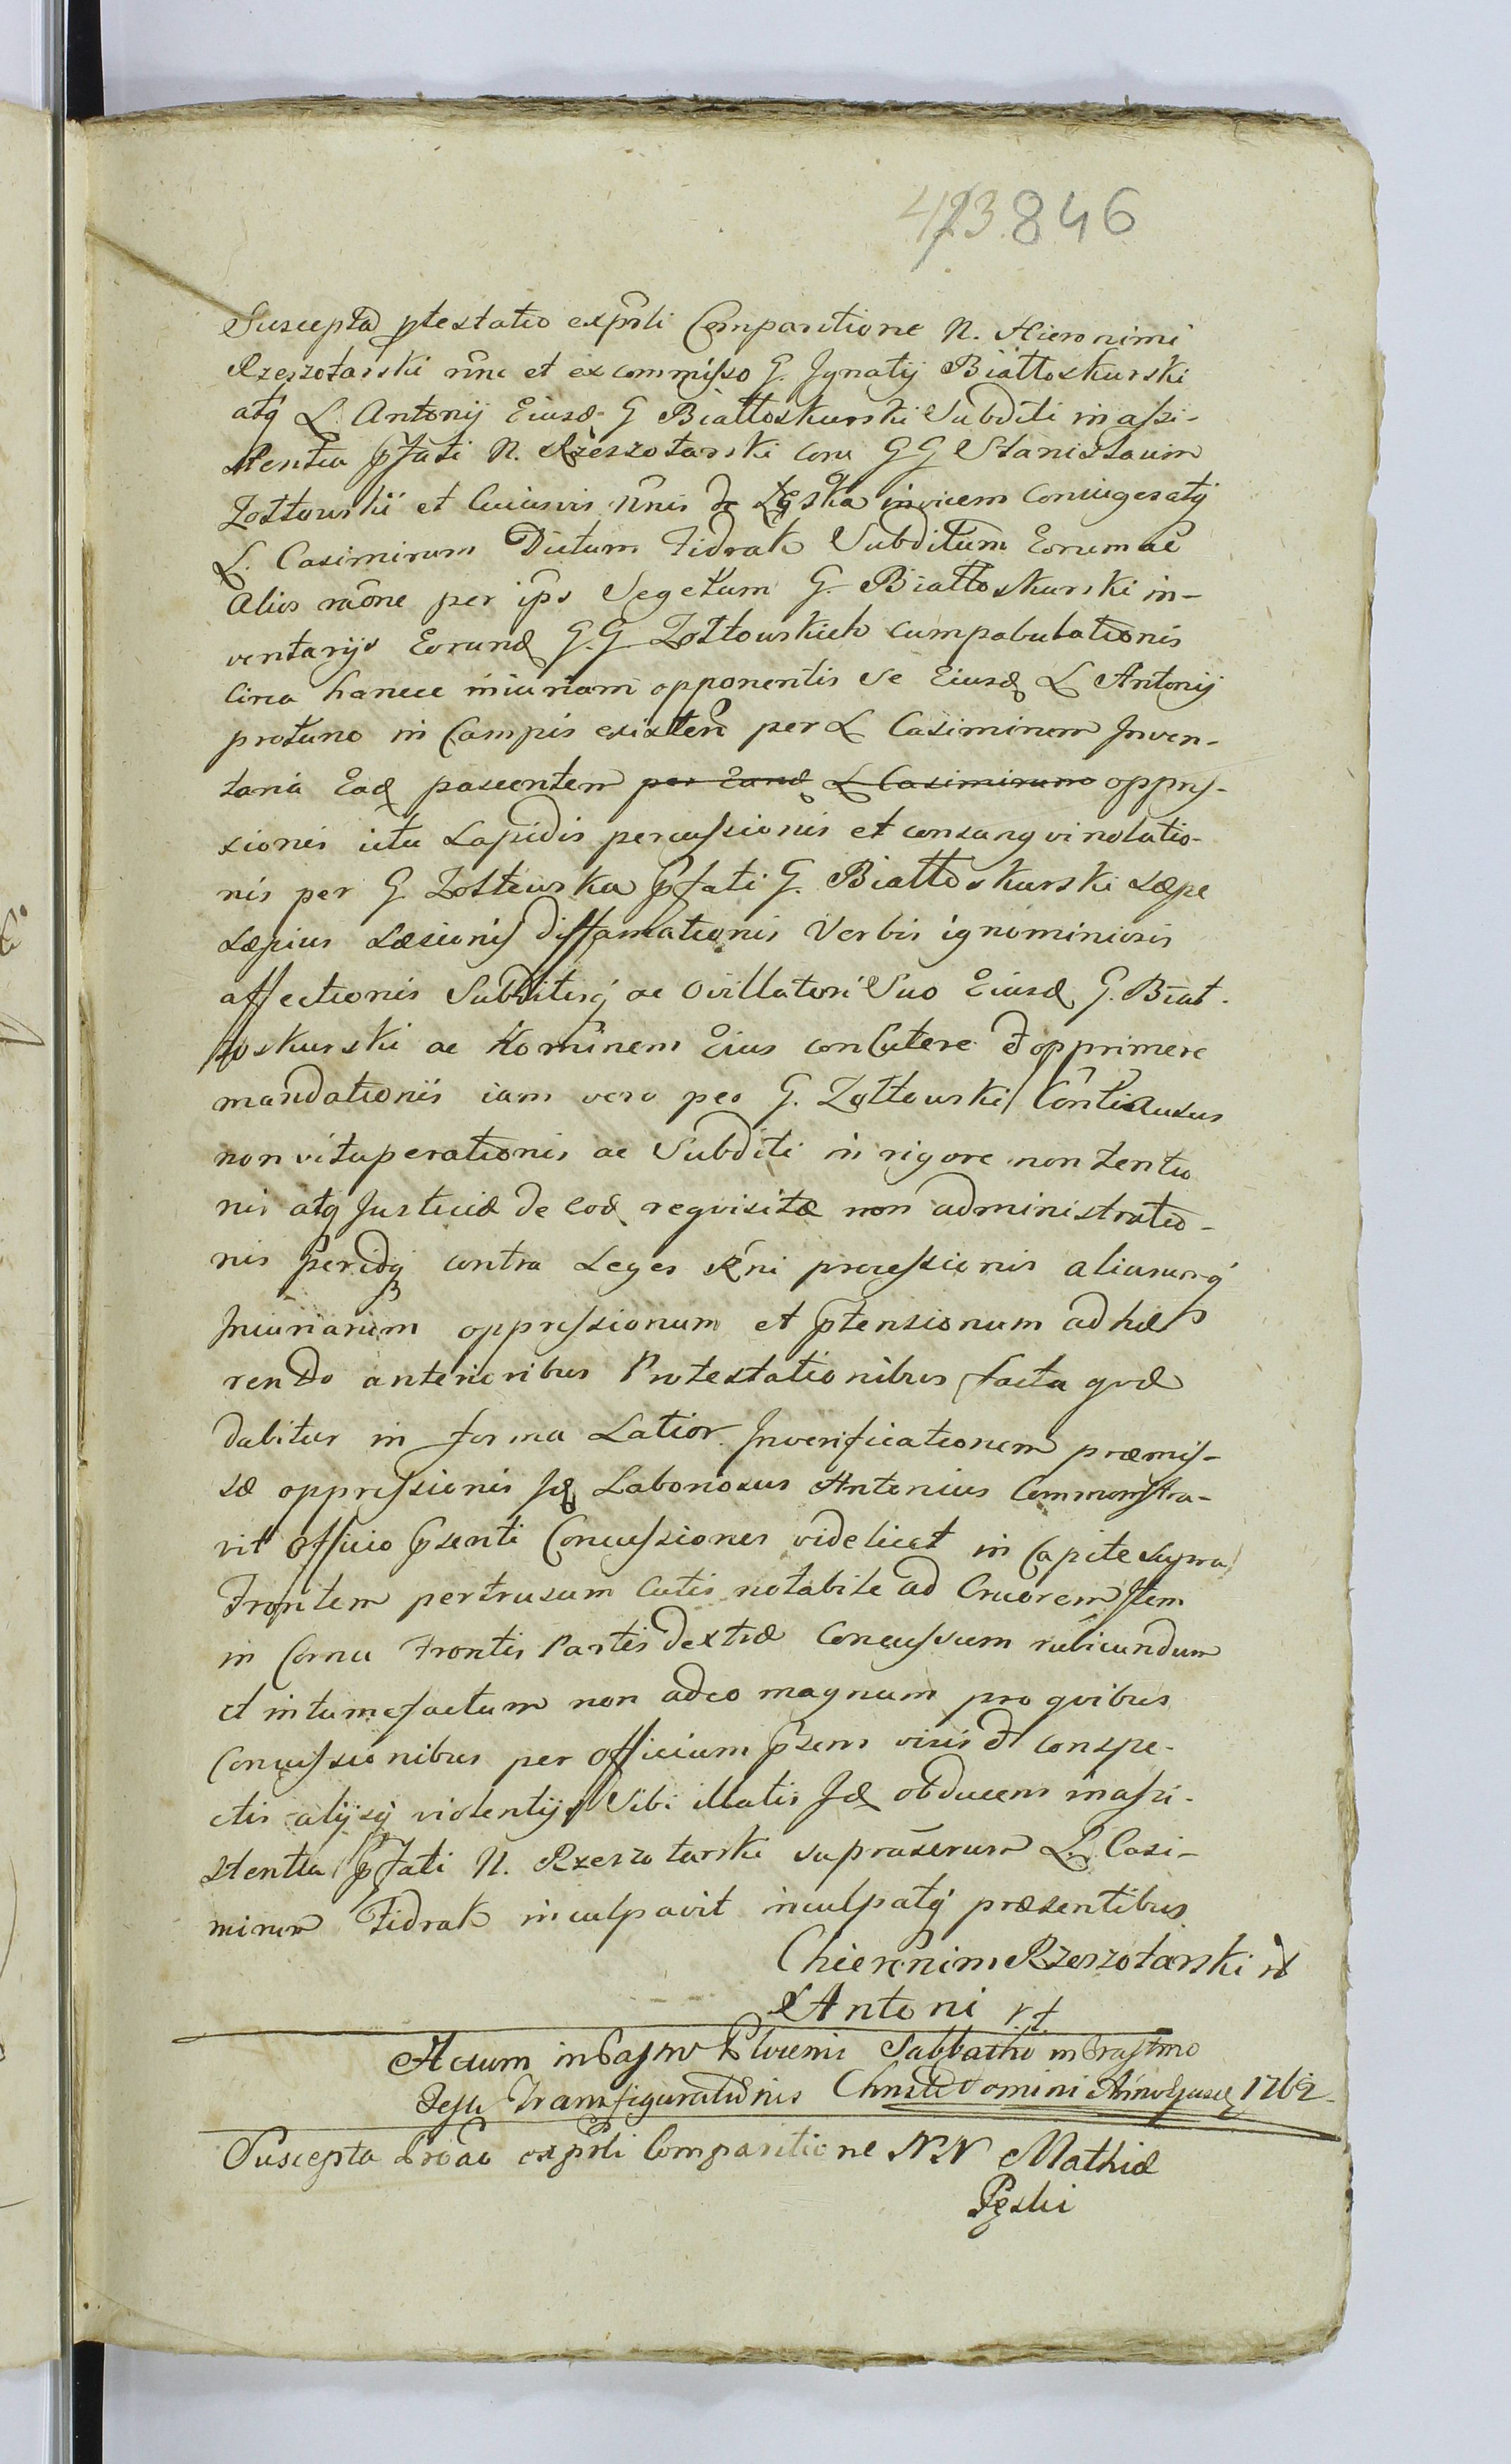 423. 846
Suscepta ptestatio exprsli Comparitione N. Hieronimi
Rzeszotarski nne et ex commisso G. Jgnatij Białłoskurski
atq L. Antonij Eiusd G Białłoskurski Subditi in assi-
stentia pfati N. Rzeszotarski cona GG Stanisłaum
Zołtowski et Cuiusvis nnis de Łęska invicem Coniuges atq
L. Casimirum Dictum Fidrak Subditum Eorum ac
Alios raone per ips Segetum G. Białłoskurski in-
ventarijs Eorund G.G Zołtowskich cumpabulationis
Circa hancce iniuriam opponentis se Eiusd L Antonij
protunc in Campis existen per L Casimirum Jnven-
taria Ead pascentem per Eund L Casimirum oppres-
sionis ictu Lapidis percussionis et consangvinolatio-
nis per G Zołtowska pfati G. Białłoskurski sæpe
sæpius Læsionis diffamationis Verbis ignominiosis
affectionis Subditisq ac Ovillatori Suo Eiusd G. Biał-
łoskurski ac Hominem Eius concutere et opprimere
mandationis iam vero per G. Zołtowski Contiausus
non vituperationis ac Subditi in rigore non tentio
nis atq Justitiæ de eod reqvisitæ non administratio-
nis peridq contra Leges Rni processionis aliarumq
Jniuriarum oppressionum et ptensionum adhæ
rendo anterioribus Protestationibus facta qvæ
dabitur in forma Latior. Jnverificationem præmis-
sæ oppressionis Jd Laboriosus Antonius Commonstra-
vit Officio psenti Concussiones videlicet in Capite supra
Frontem pertrusum Cutis notabile ad Cruorem Jtem
in Cornu Frontis Partis dextræ Concussum rubicundum
et intumefactum non adeo magnum pro qvibus
Concussionibus per Officium psens visis et conspe-
ctis alijsq violentijs Sibi illatis Jd obducens in assi-
stentia pfati N. Rzeszotarski supraserum L. Casi-
mirum Fidrak inculpavit inculpatq præsentibus
Chieronim Rzeszotarski
Antoni
Actum in Castro Plocensi Sabbatho in Crastino
Festi Transfigurationis Christi Domini Anno Ejusd 1762
Suscepta exprsli Comparitione NN Mathiæ
Pęski